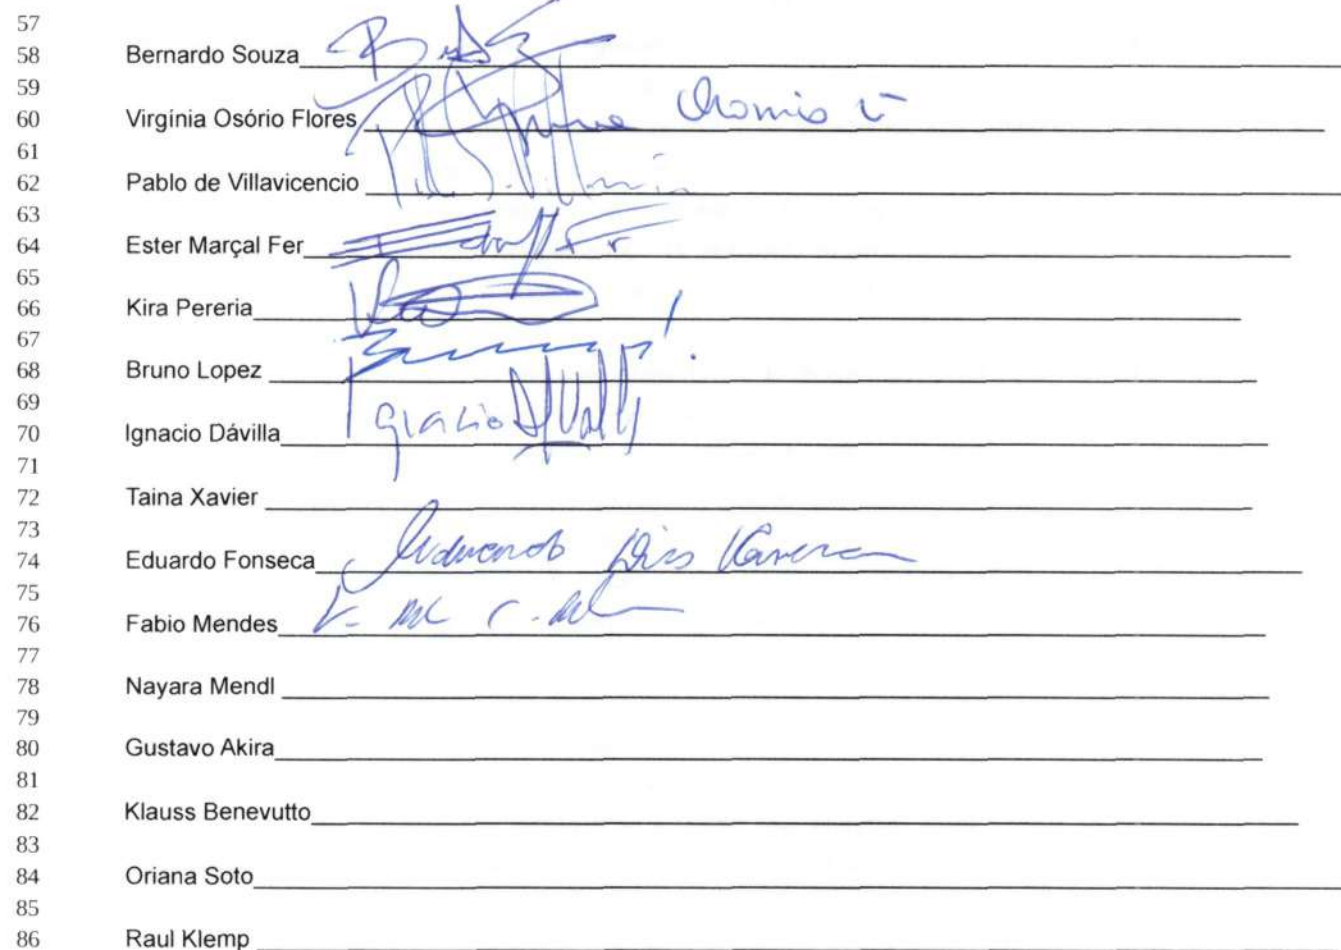 57
58 Bernardo Souza
59
60 Virgínia Osório Flores
61
62 Pablo de Villavicencio
63
64 Ester Marçal Fer
65
66 Kira Pereria
67
68 Bruno Lopez
69
70 Ignacio Dávilla
71
72 Taina Xavier
73
74 Eduardo Fonseca
75
76 Fabio Mendes
77
78 Nayara Mendl
79
80 Gustavo Akira
81
82 Klauss Benevutto
83
84 Oriana Soto
85
86 Raul Klemp